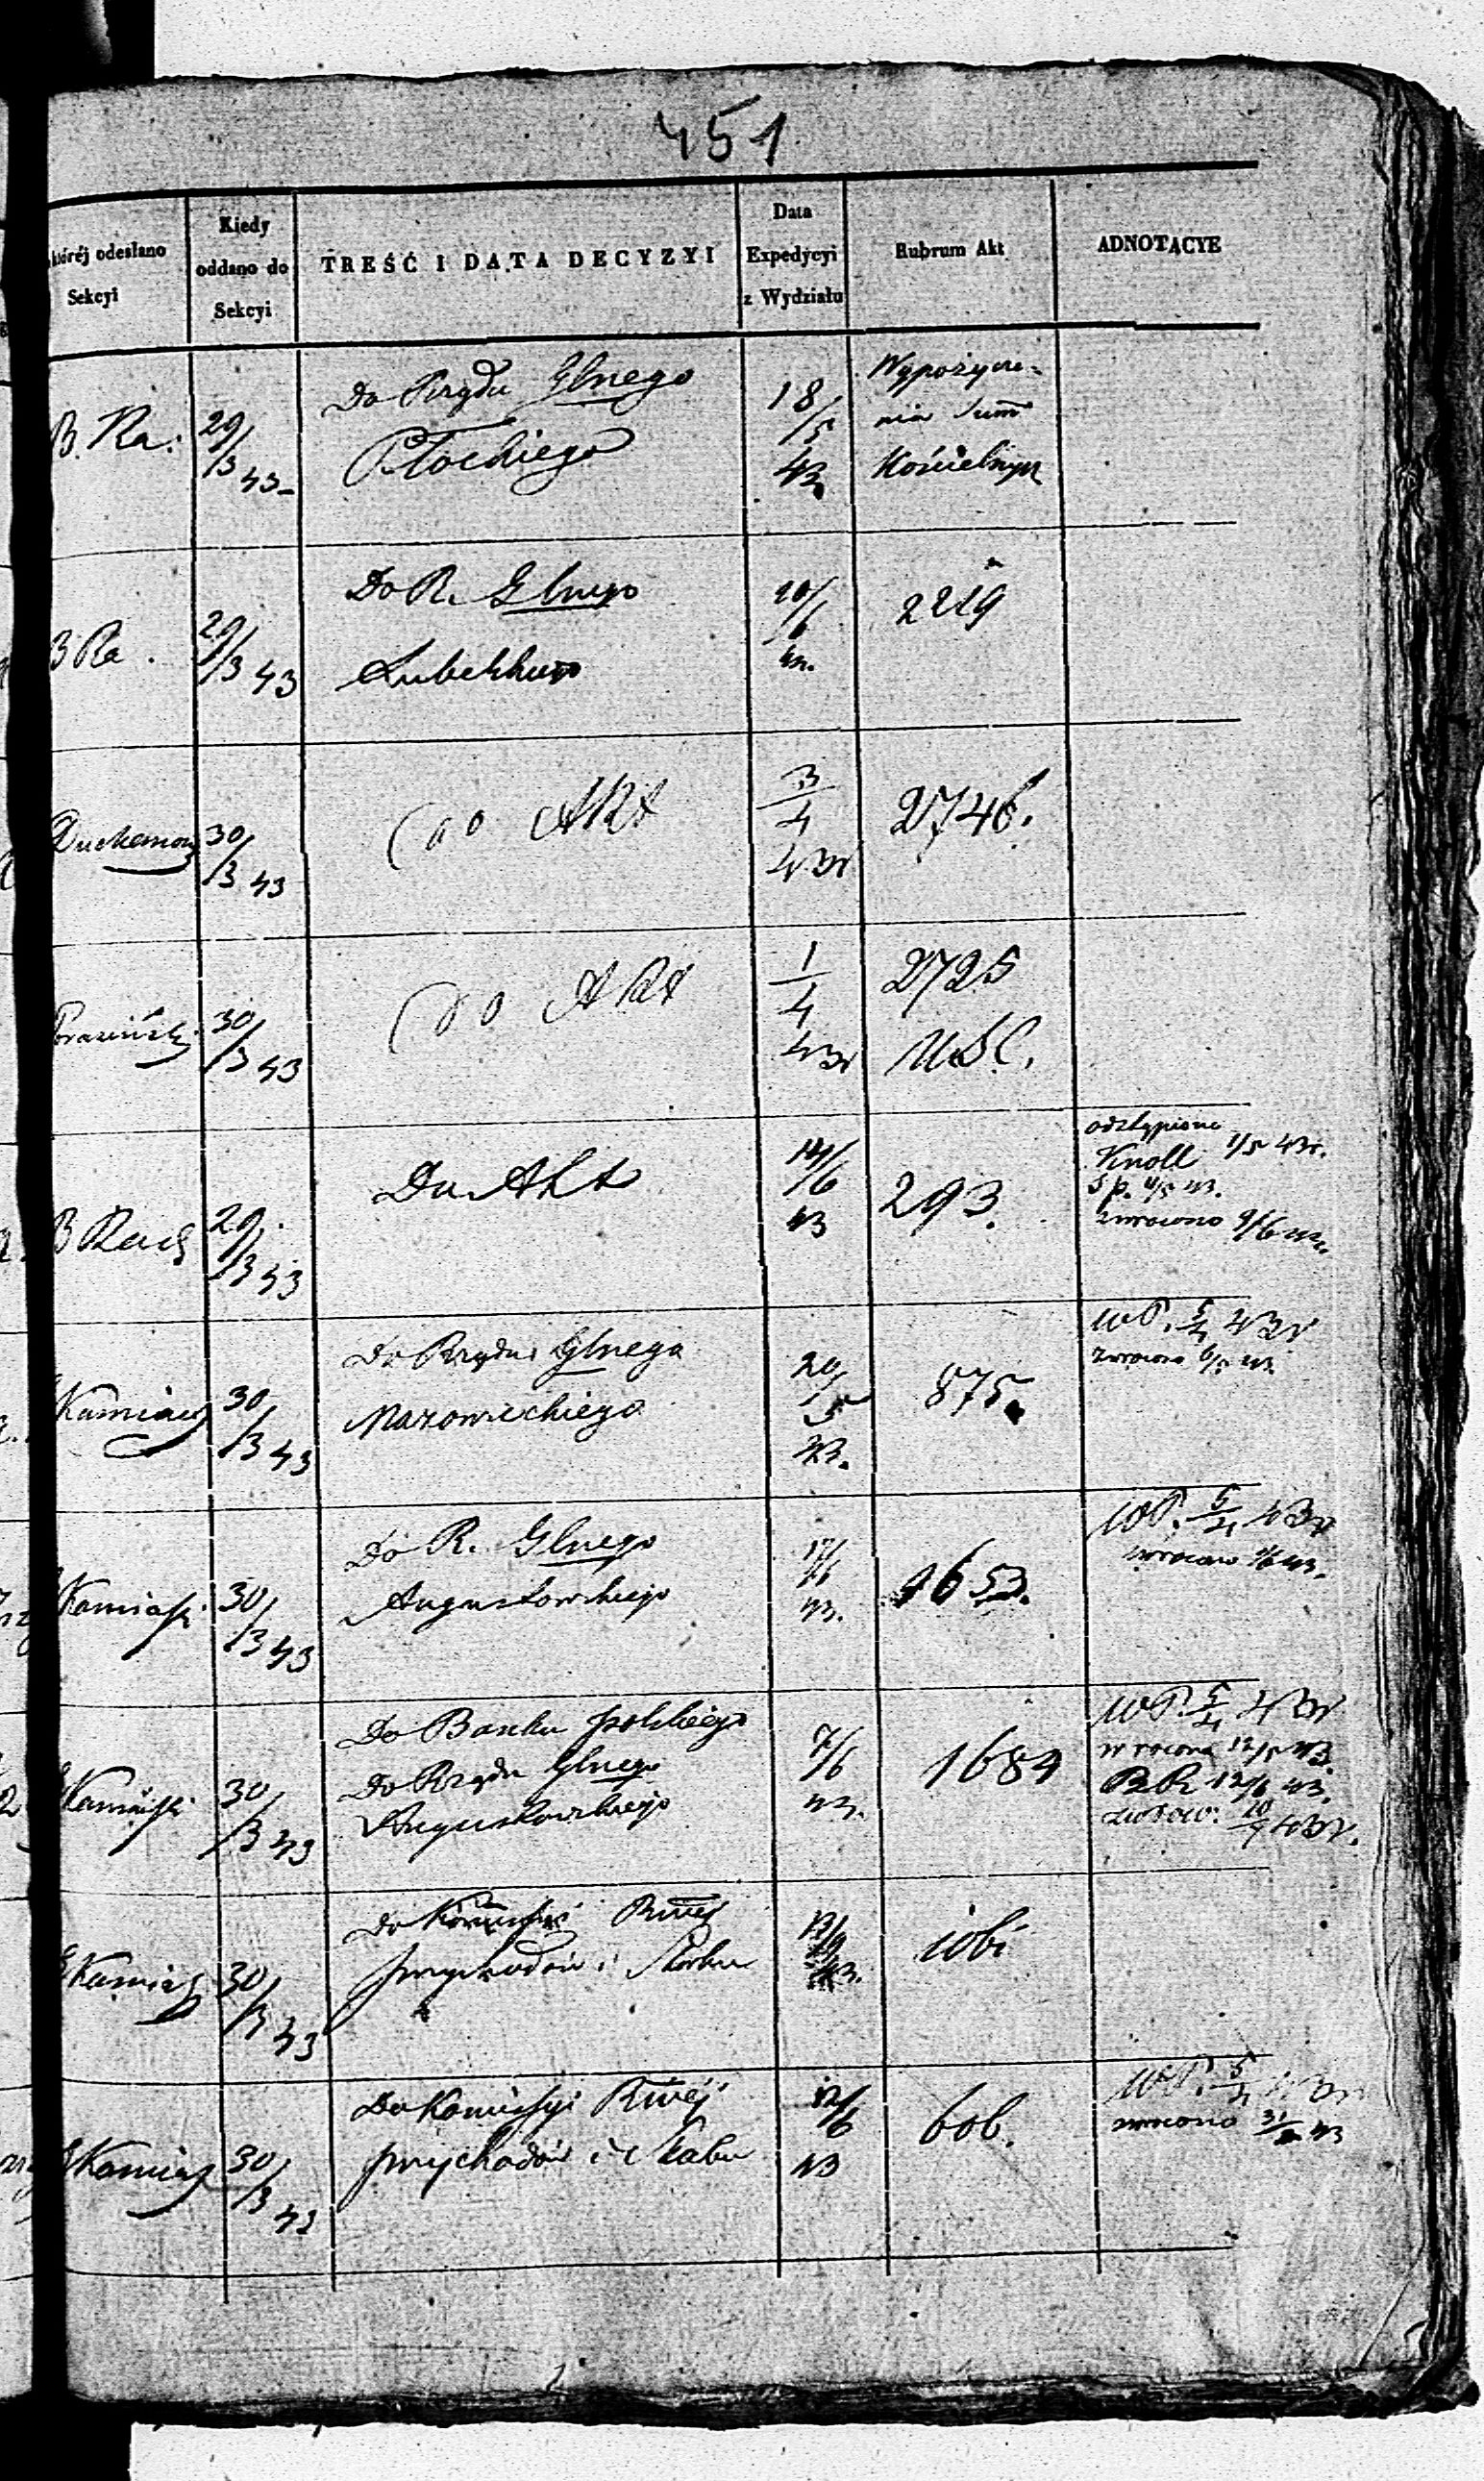 451
któréj odesłano
Sekcyi
Kiedy
oddano do
Sekcyi
TREŚĆ I DATA DECYZYI
Data
Expedycyi
z Wydziału
Rubrum Akt
ADNOTACYE
B. Ra.
29/3 43
Do Rządu Glnego
Płockiego
18/5
43
Wypożycze-
nia Summ
Kościelnych
B Ra.
29/3 43
Do R. Glnego
Lubelskiego
20/6
43.
2219
30/3 43
do Akt
3/4
43r
2746.
30/3 43
do Akt
1/4
43r
2725
USC.
B Rad
29/3 43
Do Akt
14/6
43
293.
odstąpiono
Knoll 1/5 43r.
Sp. 4/5 43.
zwrocono 9/6 43.
Kamiń
30/3 43
Do Rządu Glnego
Mazowieckiego
20/5
43.
875.
WP. 5/4 43r
zwrocono 6/5 43
Kamiński
30/3 43
Do R. Glnego
Augustowskiego
17/6
43.
1653.
WP. 5/4 43r
zwrocono
43.
Kamiński
30/3 43
Do Banku polskiego
Do Rządu Glnego
Augustowskiego
7/6
43.
1684
WP. 5/4 43r
wrocono 12/5 43.
BR 12/6 43.
zwroco. 20/7 43r.
Kamiń
30/3 43
Do Kommissyi Rwej
przychodów i Skarbu
43.
Kamiń
30/3 43
Do Komissyi Rwej
przychodów i Skarbu
12/6
43
606.
WP. 5/4 43r
zwrocono 31/5 43